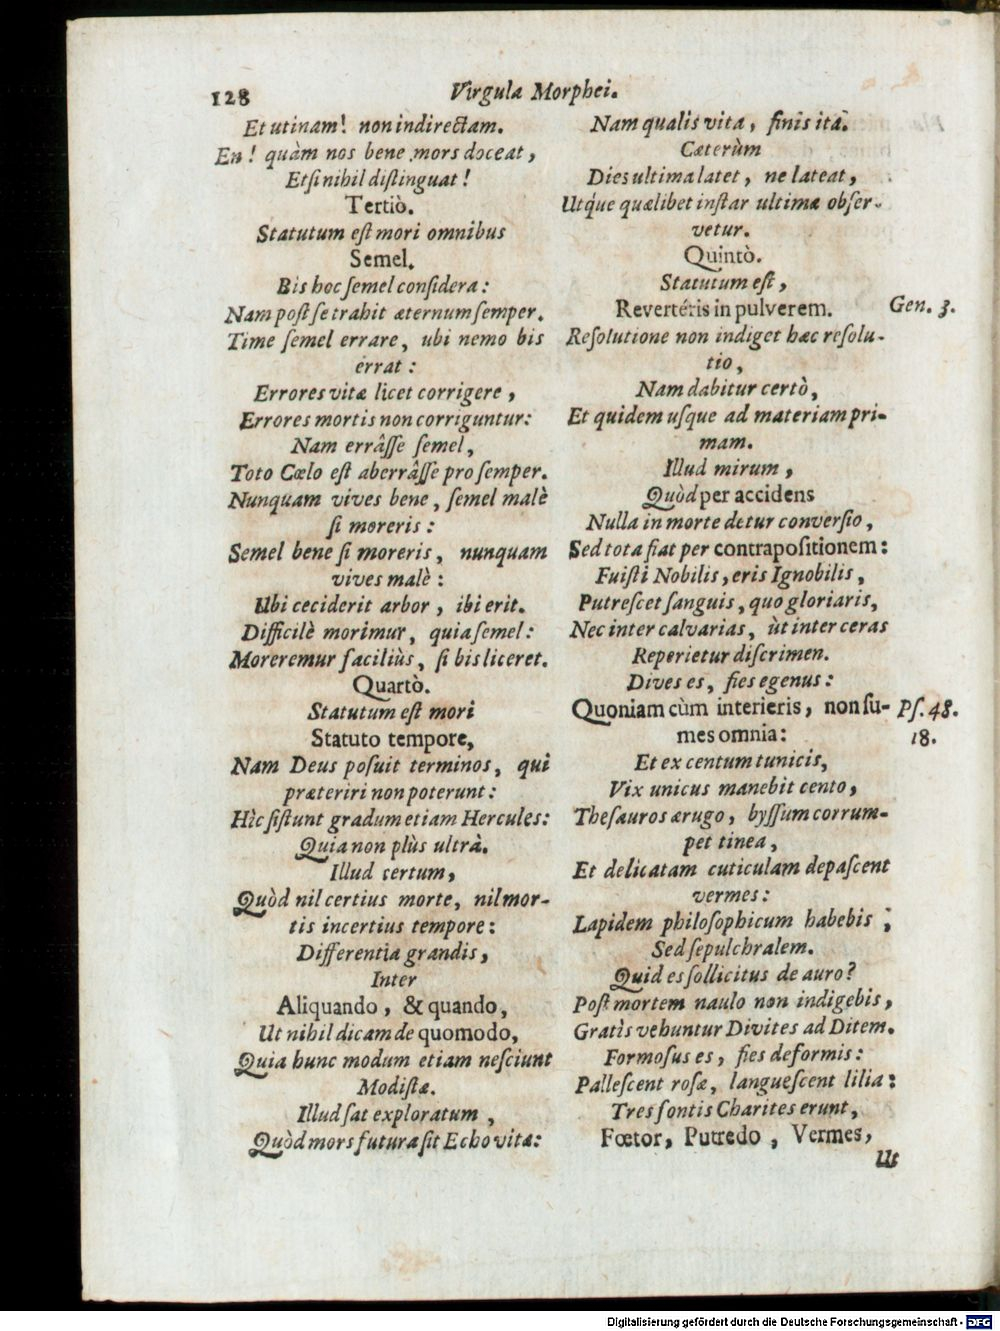 128
Virgula Morphei.
Et utinam! non indirectam.
En! quàm nos bene mors doceat,
Etsi nihil distinguat!
Tertiò.
Statutum est mori omnibus
Semel.
Bis hoc semel considera:
Nam post se trahit æternum semper.
Time semel errare, ubi nemo bis
errat:
Errores vitæ licet corrigere,
Errores mortis non corriguntur:
Nam errâsse semel,
Toto Cœlo est aberrâsse pro semper.
Nunquam vives bene, semel malè
si moreris:
Semel bene si moreris, nunquam
vives malè:
Ubi ceciderit arbor, ibi erit.
Difficilè morimur, quia semel:
Moreremur faciliùs, si bis liceret.
Quartò.
Statutum est mori
Statuto tempore,
Nam Deus posuit terminos, qui
præteriri non poterunt:
Hìc sistunt gradum etiam Hercules:
Quia non plùs ultrà.
Illud certum,
Quòd nil certius morte, nil mor-
tis incertius tempore:
Differentia grandis,
Inter
Aliquando, & quando,
Ut nihil dicam de quomodo,
Quia hunc modum etiam nesciunt
Modistæ.
Illud sat exploratum,
Quòd mors futura sit Echo vitæ:
Nam qualis vita, finis ita.
Cæterùm
Dies ultima latet, ne lateat,
Utque quælibet instar ultimæ obser-
vetur.
Quintò.
Statutum est,
Revertéris in pulverem.
Gen. 3.
Resolutione non indiget hæc resolu-
tio,
Nam dabitur certò,
Et quidem usque ad materiam pri-
mam.
Illud mirum,
Quòd per accidens
Nulla in morte detur conversio,
Sed tota fiat per contrapositionem:
Fuisti Nobilis, eris Ignobilis,
Putrescet sanguis, quo gloriaris,
Nec inter calvarias, ùt inter ceras
Reperietur discrimen.
Dives es, fies egenus:
Quoniam cùm interieris, non su-
mes omnia:
Ps. 48.
18.
Et ex centum tunicis,
Vix unicus manebit cento,
Thesauros ærugo, byssum corrum-
pet tinea,
Et delicatam cuticulam depascent
vermes:
Lapidem philosophicum habebis,
Sed sepulchralem.
Quid es sollicitus de auro?
Post mortem naulo non indigebis,
Gratìs vehuntur Divites ad Ditem.
Formosus es, fies deformis:
Pallescent rosæ, languescent lilia:
Tres fontis Charites erunt,
Fœtor, Putredo, Vermes,
Ut
Digitalisierung gefördert durch die Deutsche Forschungsgemeinschaft - DFG